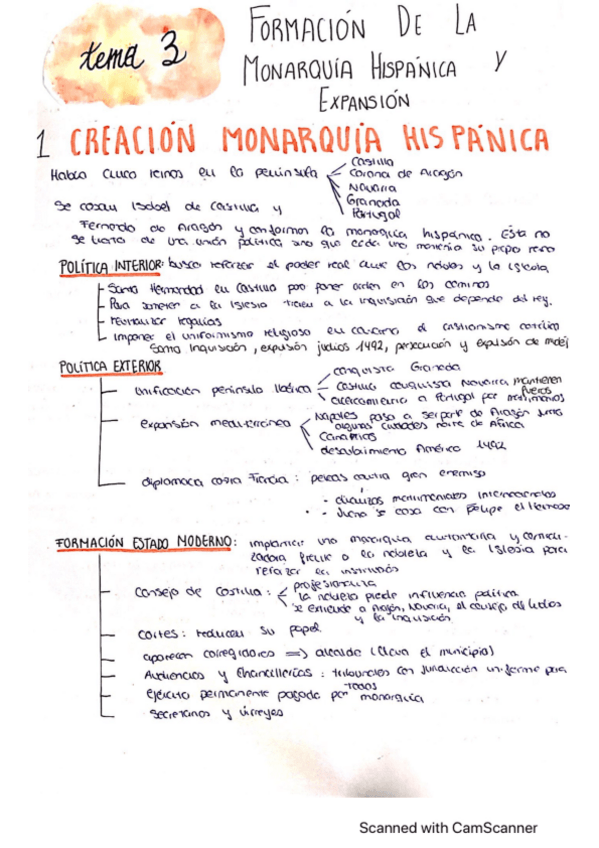 tema 3
FORMACIÓN DE LA
MONARQUÍA HISPÁNICA Y
EXPANSIÓN
1 CREACIÓN MONARQUÍA HISPÁNICA
Había cinco reinos en la península
Castilla
Corona de Aragón
Navarra
Granada
Portugal
Se casan Isabel de Castilla y
Fernando de Aragón y conforman la monarquía hispánica. Esta no
se trata de una unión política sino que cada uno mantenía su propio reino
POLÍTICA INTERIOR: busca reforzar el poder real ante los nobles y la iglesia
Santa Hermandad en Castilla por poner orden en los caminos
Para someter a la Iglesia traen a la inquisición que depende del rey.
regalías
Imponer el uniformismo religioso en el cristianismo católico
Santa Inquisición, expulsión judíos 1492, persecución y expulsión de
POLÍTICA EXTERIOR
unificación península Ibérica
conquista Granada
Castilla conquista Navarra mantienen
fueros
acercamiento a Portugal por matrimonios
expansión mediterránea
Nápoles pasa a ser parte de Aragón junto
algunas ciudades norte de África
Canarias
descubrimiento América 1492
diplomacia contra Francia: peleas contra gran enemigo
· alianzas matrimoniales internacionales
· Juana se casa con Felipe el Hermoso
FORMACIÓN ESTADO MODERNO: implantar una monarquía autoritaria y
zadora frente a la nobleza y la Iglesia para
reforzar
Consejo de Castilla:
profesionaliza
la nobleza pierde influencia política
se extiende a Aragón, Navarra, el consejo de Indios
y la inquisición
cortes: reducen su papel
aparecen corregidores => alcalde (lleva el municipio)
Audiencias y Chancillerías: tribunales con jurisdicción uniforme para
todos
ejército permanente pagado por monarquía
secretarios y virreyes
Scanned with CamScanner